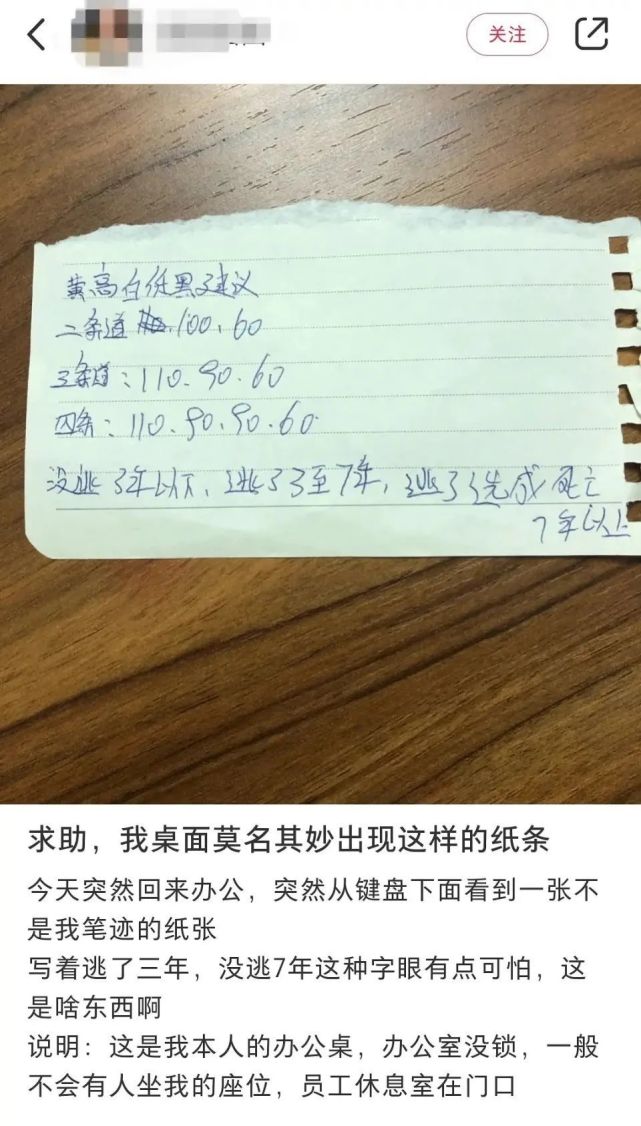 关注
黄高白低黑建议
二条道 100、60
三条道:110、90、60
四条:110、90、90、60
没逃3年以下、逃了3至7年,逃了造成死亡
7年以上
求助，我桌面莫名其妙出现这样的纸条
今天突然回来办公，突然从键盘下面看到一张不
是我笔迹的纸张
写着逃了三年，没逃7年这种字眼有点可怕，这
是啥东西啊
说明：这是我本人的办公桌，办公室没锁，一般
不会有人坐我的座位，员工休息室在门口